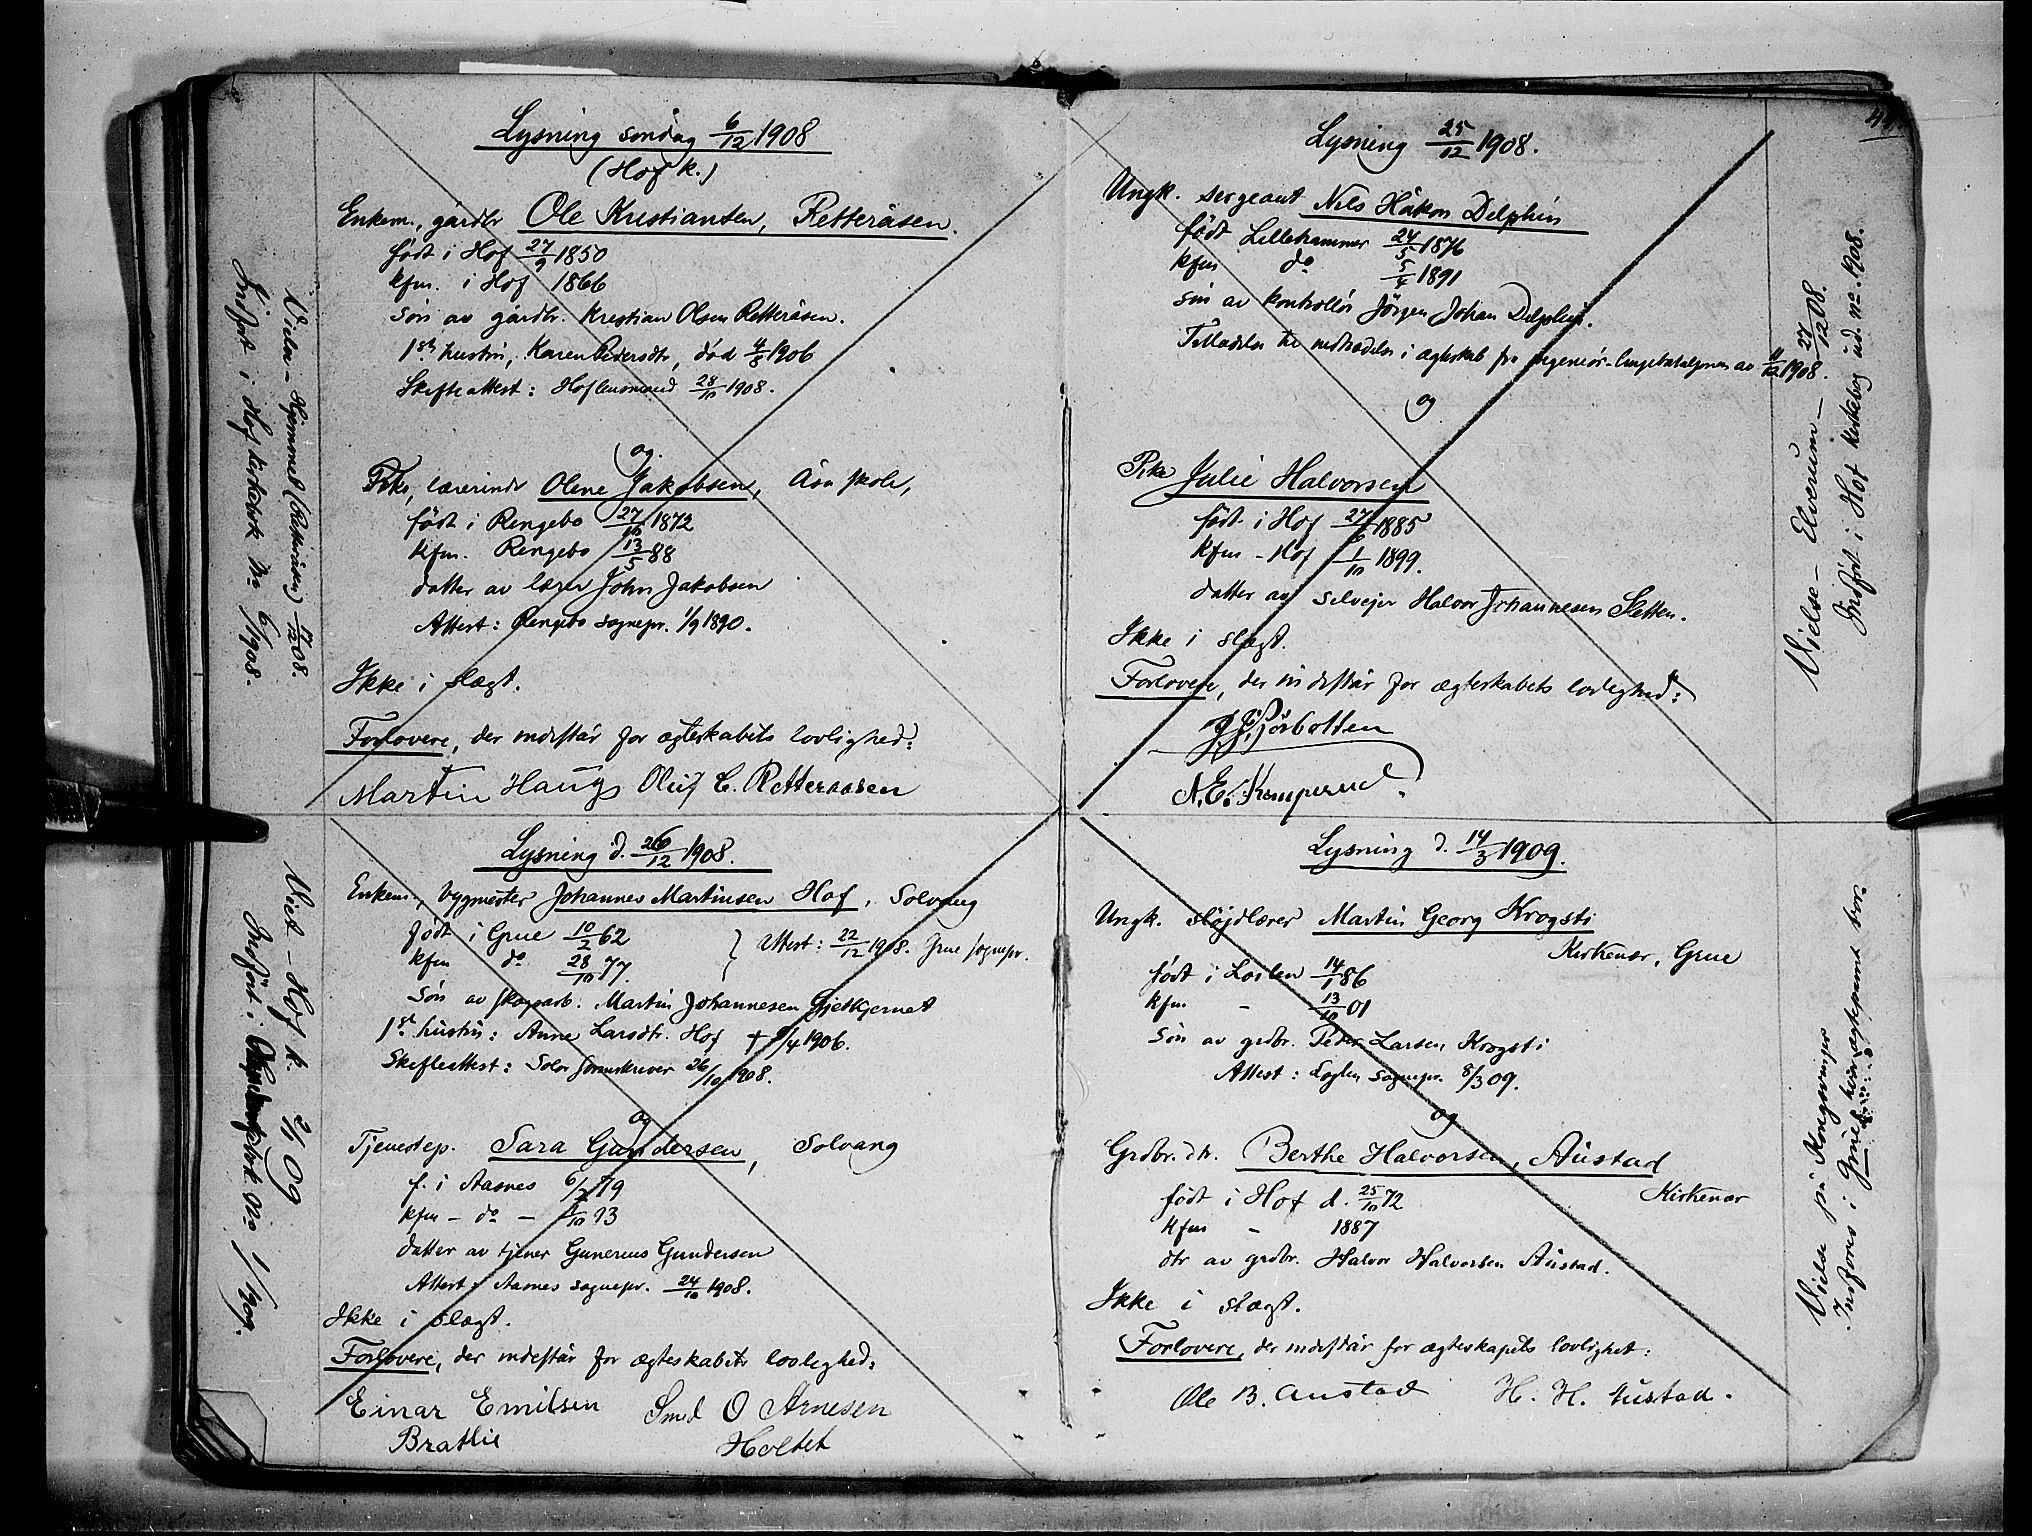 Lysning søndag 6/12 1908
(Hof k.)
Enkem., gårdbr Ole Kristiansen, Retteråsen.
født i Hof 27/9 1850
kfm. i Hof 1866
søn av gårdbr. Kristian Olsen Retteråsen.
1ste hustru, Karen Pedersdtr, død 4/3 1906
Skifteattest: Hof lensmand 28/10 1908.
og
Pike, lærerinde Olene Jakobsen, Åsa skole,
født i Ringebo 27/10 1872
kfm. Ringebo 13/5 88
datter av lærer John Jakobsen
Attest: Ringebo sognepr. 1/9 1890.
Ikke i slægt.
Forlovere, der indestår for ægteskabets lovlighed:
Martin Haugs Oluf C. Retteraasen
Vielse – Hjemmet (Retteråsen) 17/12 08.
Indført i Hof kirkebok No 6/1908.
Lysning d. 26/12 1908.
Enkem., bygmester Johannes Martinsen Hof, Solvang
født i Grue 10/2 62
kfm do 28/10 77.
Attest: 22/12 1908. Grue sognepr.
Søn av skogsarb. Martin Johannesen Gjetkjernet
1st hustru: Anne Larsdtr. Hof + 9/4 1906.
Skifteattest: Solør sorenskriver 26/10 1908.
og
Tjenestep. Sara Gundersen, Solvang
f. i Aasnes 6/7 79
kfm – do – 1/10 93
datter av tjener Gunerius Gundersen
Attest: Aasnes sognepr. 24/10 1908.
Ikke i slægt.
Forlovere, der indestår for ægteskabets lovlighed:
Einar Emilsen Smed O Arnesen
Brattlie Holtet
Viet – Hof k. 2/1 09
Indført i kirkebok No 1/1909.
Lysning 25/12 1908.
Ungk. sergeant Nils Håkon Delphin
født Lillehammer 24/5 1876
kfm do 5/4 1891
søn av kontrollør Jörgen Johan Delphin.
Tilladelse til indtrædelse i ægteskab fra ingeniör- av 11/12 1908.
og
Pike Julie Halvorsen
født i Hof 27/6 1885
kfm – Hof 1/10 1899.
datter av selveier Halvor Johannesen Sletten.
Ikke i slægt.
Forlovere, der indestår for ægteskabets lovlighed:
N. E. Kemperud.
Vielse – Elverum – 27/12 08.
Indført i Hof kirkebog ud. no. 1908.
Lysning d. 14/3 1909.
Ungk. sløjdlærer Martin Georg Krogsti
Kirkenær, Grue
født i Løiten 14/1 86
kfm – 13/10 01
Søn av grdbr. Peder Larsen Krogsti
Attest: Løiten sognepr. 8/3 09.
og
Grdbr.dtr. Berthe Halvorsen, Austad
Kirkenær
født i Hof d. 25/10 72
kfm – 1887
dtr av grdbr. Halvor Halvorsen Austad.
Ikke i slægt.
Forlovere, der indestår for ægteskapets lovlighet:
Ole B. Austad H. H. Austad.
Vielse på Kongsvinger
Indføres i Grue, hvor ægteparret bor.